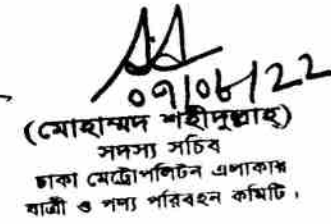 09/06/22
(মোহাম্মদ শহীদুল্লাহ)
সদস্য সচিব
ঢাকা মেট্রোপলিটন এলাকায়
যাত্রী ও পণ্য পরিবহন কমিটি।